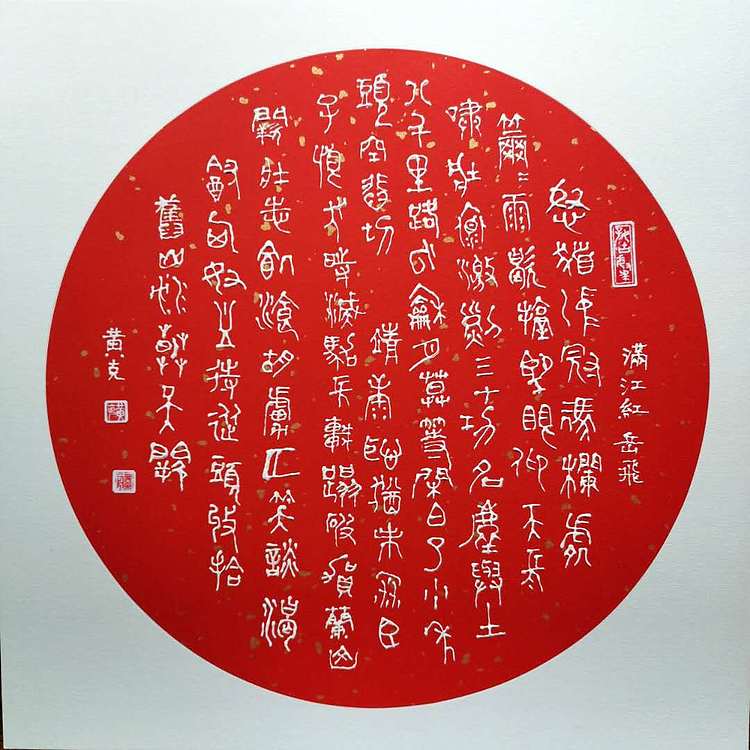 滿江紅 岳飛
怒髮衝冠憑欄處
瀟瀟雨歇擡望眼仰天長
嘯壯懷激烈三十功名塵與土
八千里路雲龢月莫等閒白了少年
頭空悲切 靖康恥猶未雪臣
子恨何時滅駕長車踏破賀蘭山
闕壯志飢餐胡虜肉笑談渴
飲匈奴血待從頭收拾
舊山河朝天闕
黃克